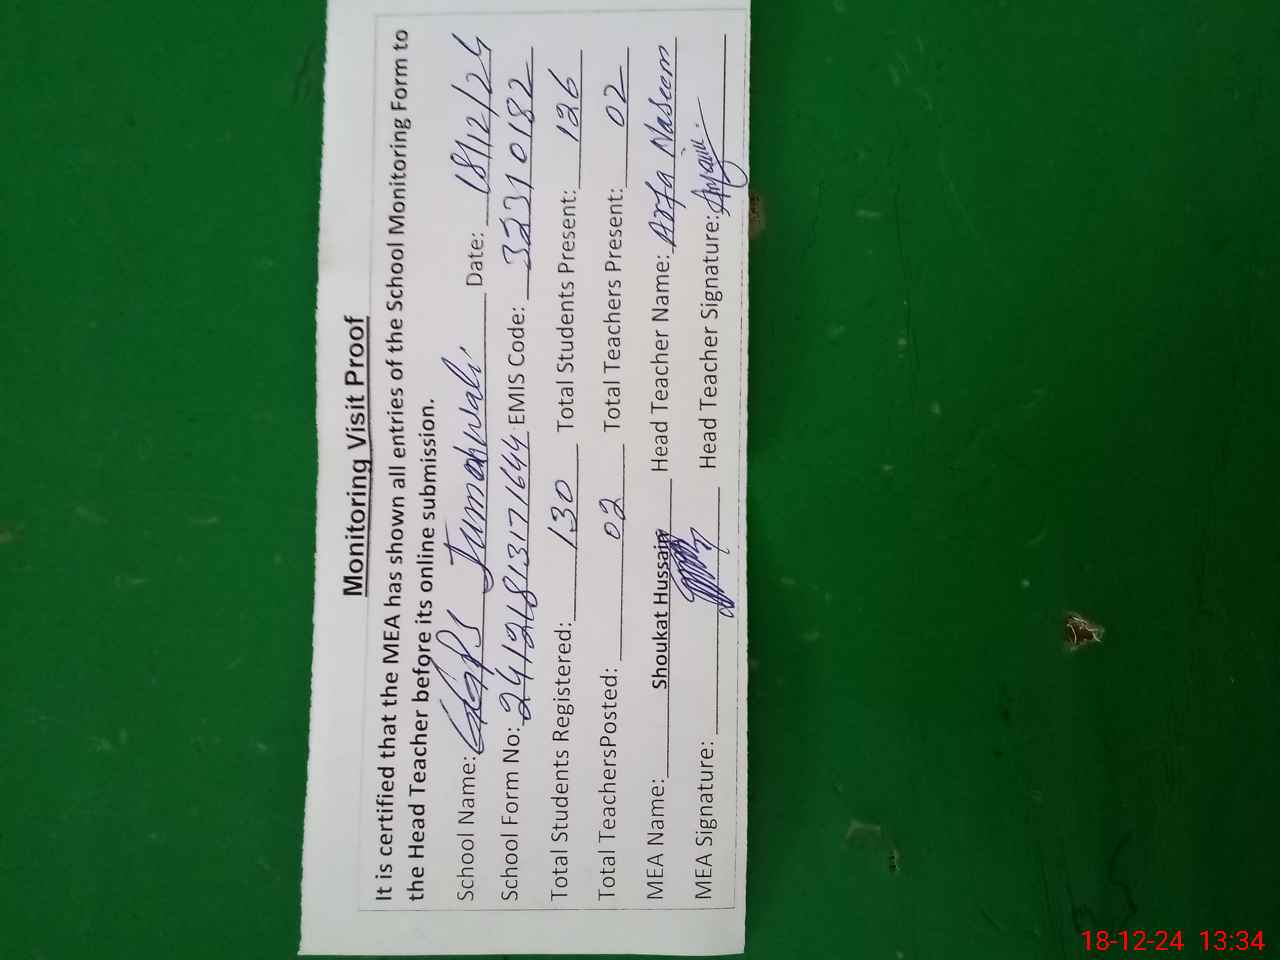 Monitoring Visit Proof
It is certified that the MEA has shown all entries of the School Monitoring Form to
the Head Teacher before its online submission.
School Name: GGPS Jumahwali Date: 18/12/24
School Form No: 24121813171644 EMIS Code: 32310182
Total Students Registered: 130 Total Students Present: 126
Total TeachersPosted: 02 Total Teachers Present: 02
MEA Name: Shoukat Hussain Head Teacher Name: Arfa Naseem
MEA Signature: Head Teacher Signature:
18-12-24 13:34